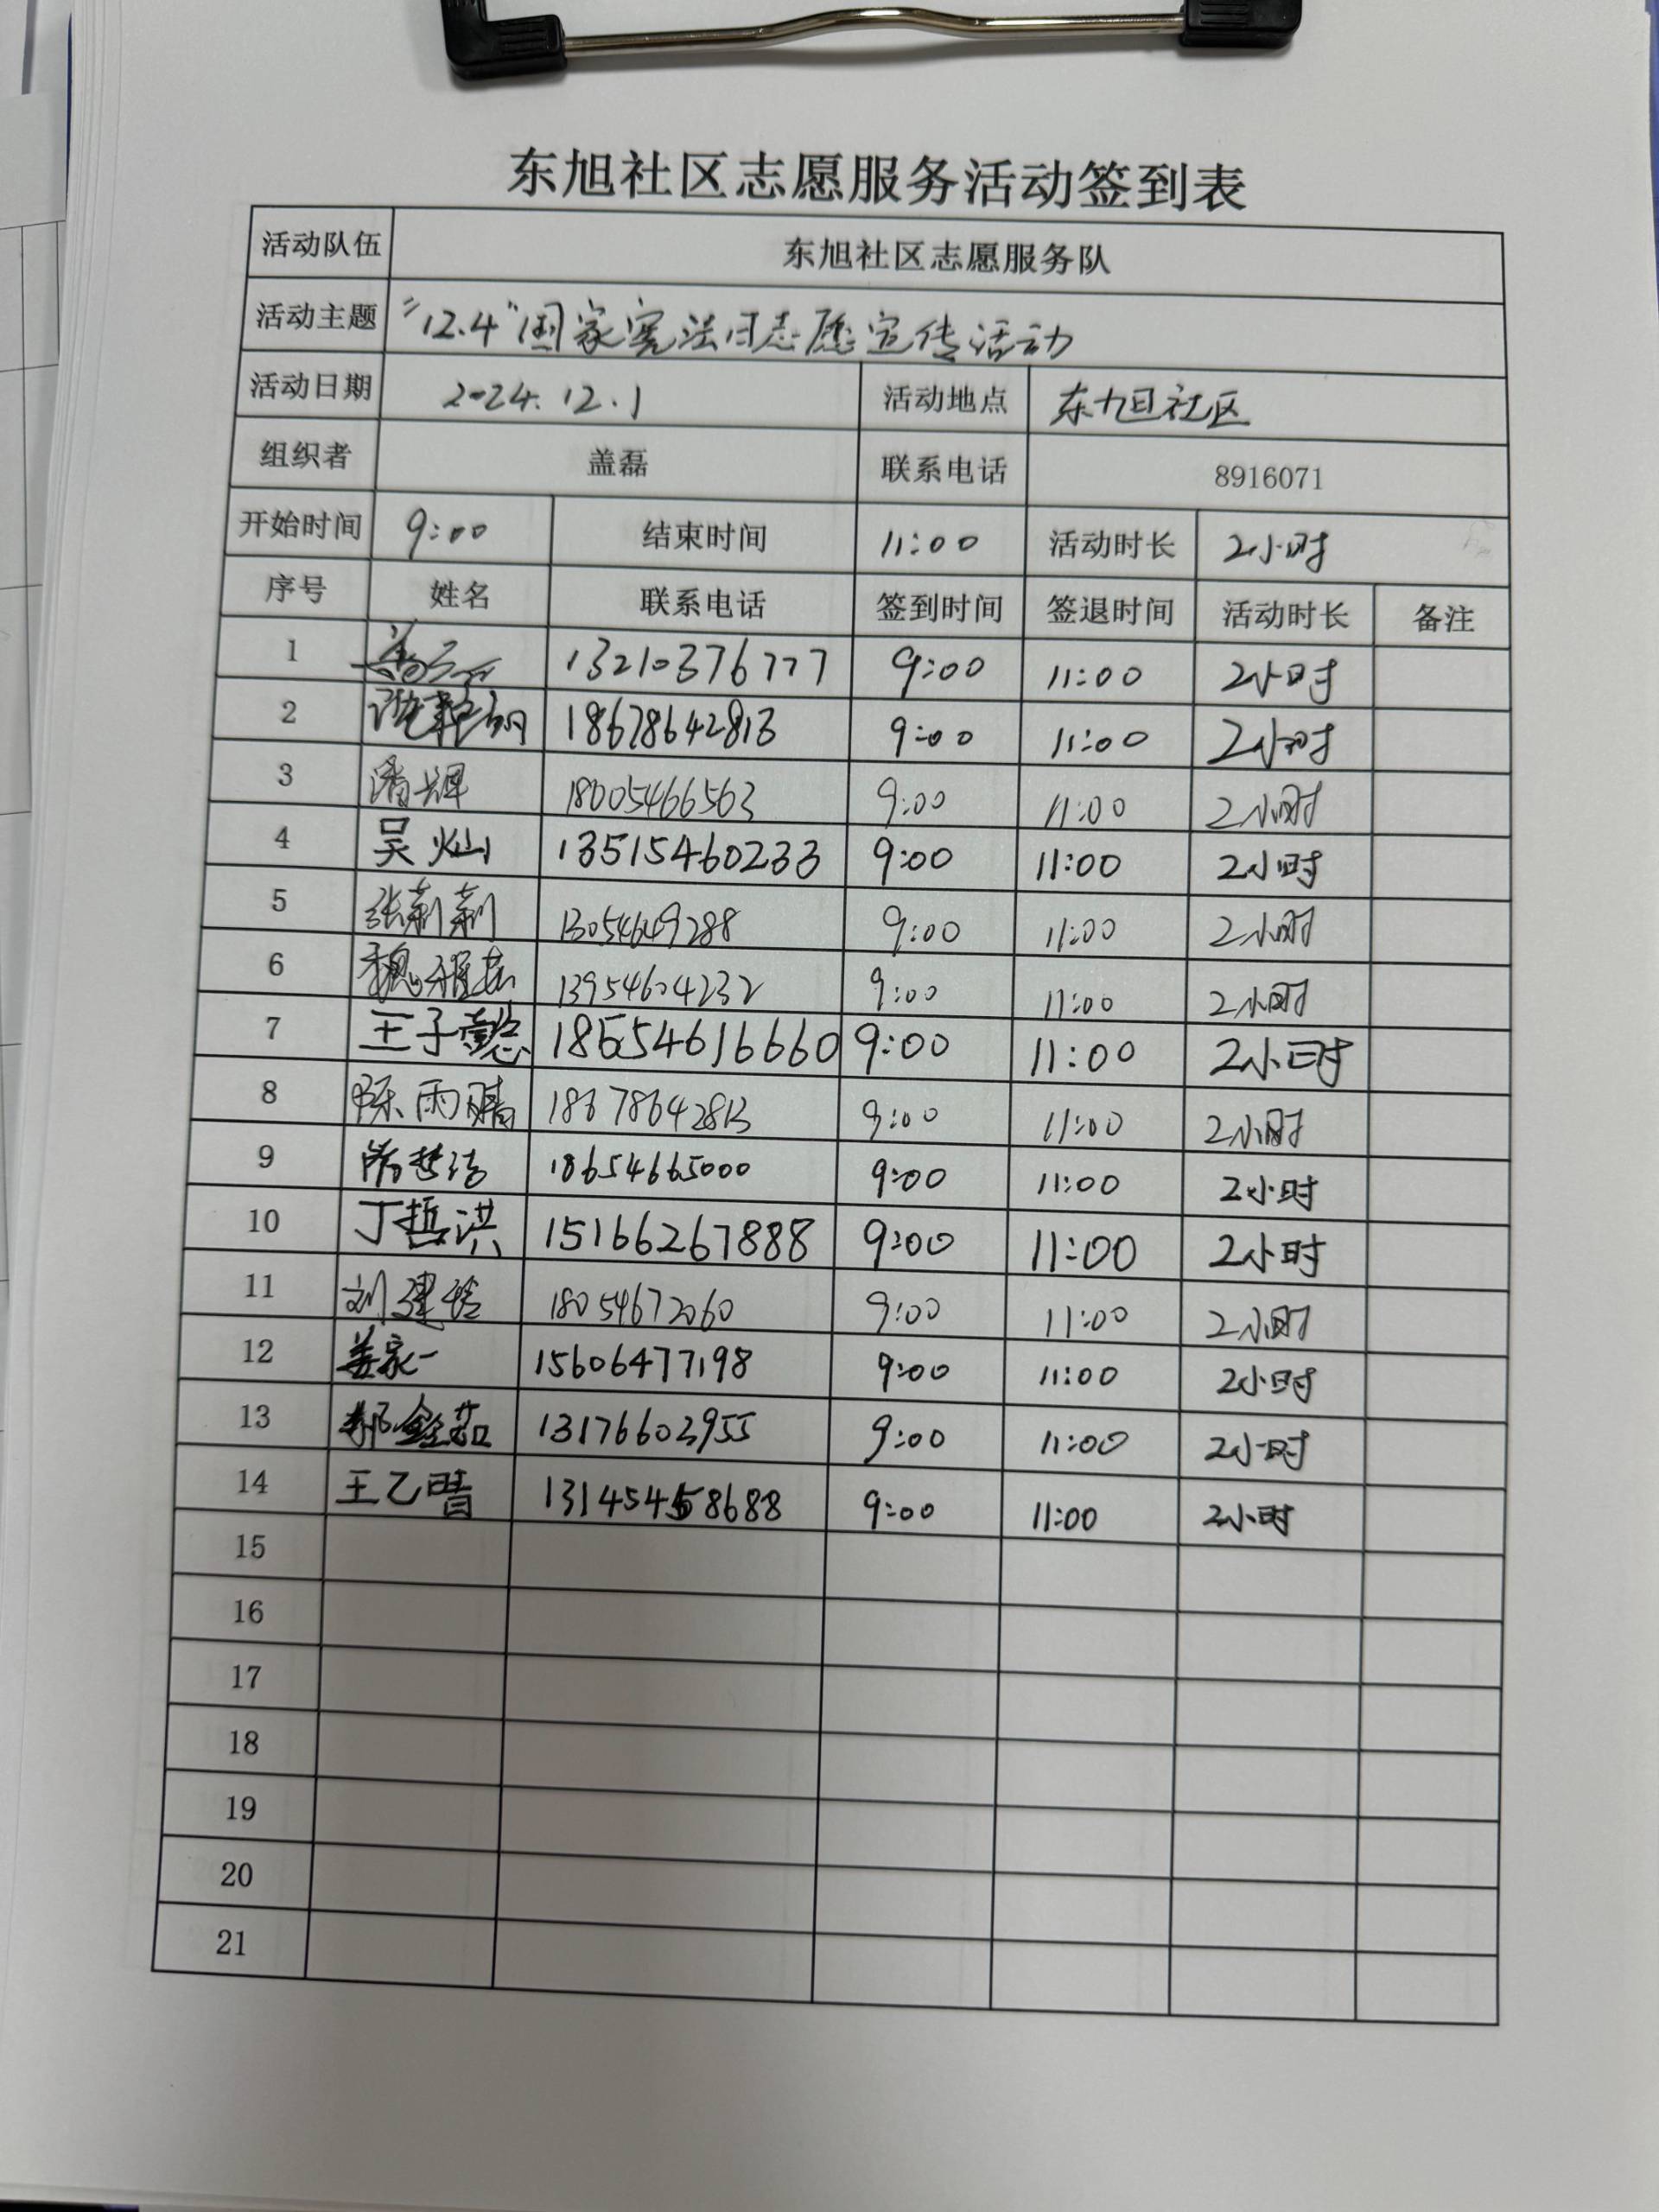 东旭社区志愿服务活动签到表
活动队伍 东旭社区志愿服务队
活动主题 "12.4"国家宪法日志愿宣传活动
活动日期 2024.12.1 活动地点 东旭社区
组织者 盖磊 联系电话 8916071
开始时间 9:00 结束时间 11:00 活动时长 2小时
序号 姓名 联系电话 签到时间 签退时间 活动时长 备注
1 13210376777 9:00 11:00 2小时
2 18678642813 9:00 11:00 2小时
3 潘辉 18005466563 9:00 11:00 2小时
4 吴灿 13515460233 9:00 11:00 2小时
5 张莉莉 13054649288 9:00 11:00 2小时
6 13954604232 9:00 11:00 2小时
7 王子懿 18654616660 9:00 11:00 2小时
8 陈雨晴 18678642813 9:00 11:00 2小时
9 18654665000 9:00 11:00 2小时
10 丁哲洪 15166267888 9:00 11:00 2小时
11 18054672060 9:00 11:00 2小时
12 姜家一 15606477198 9:00 11:00 2小时
13 13176603955 9:00 11:00 2小时
14 王乙晴 9:00 11:00 2小时
15
16
17
18
19
20
21